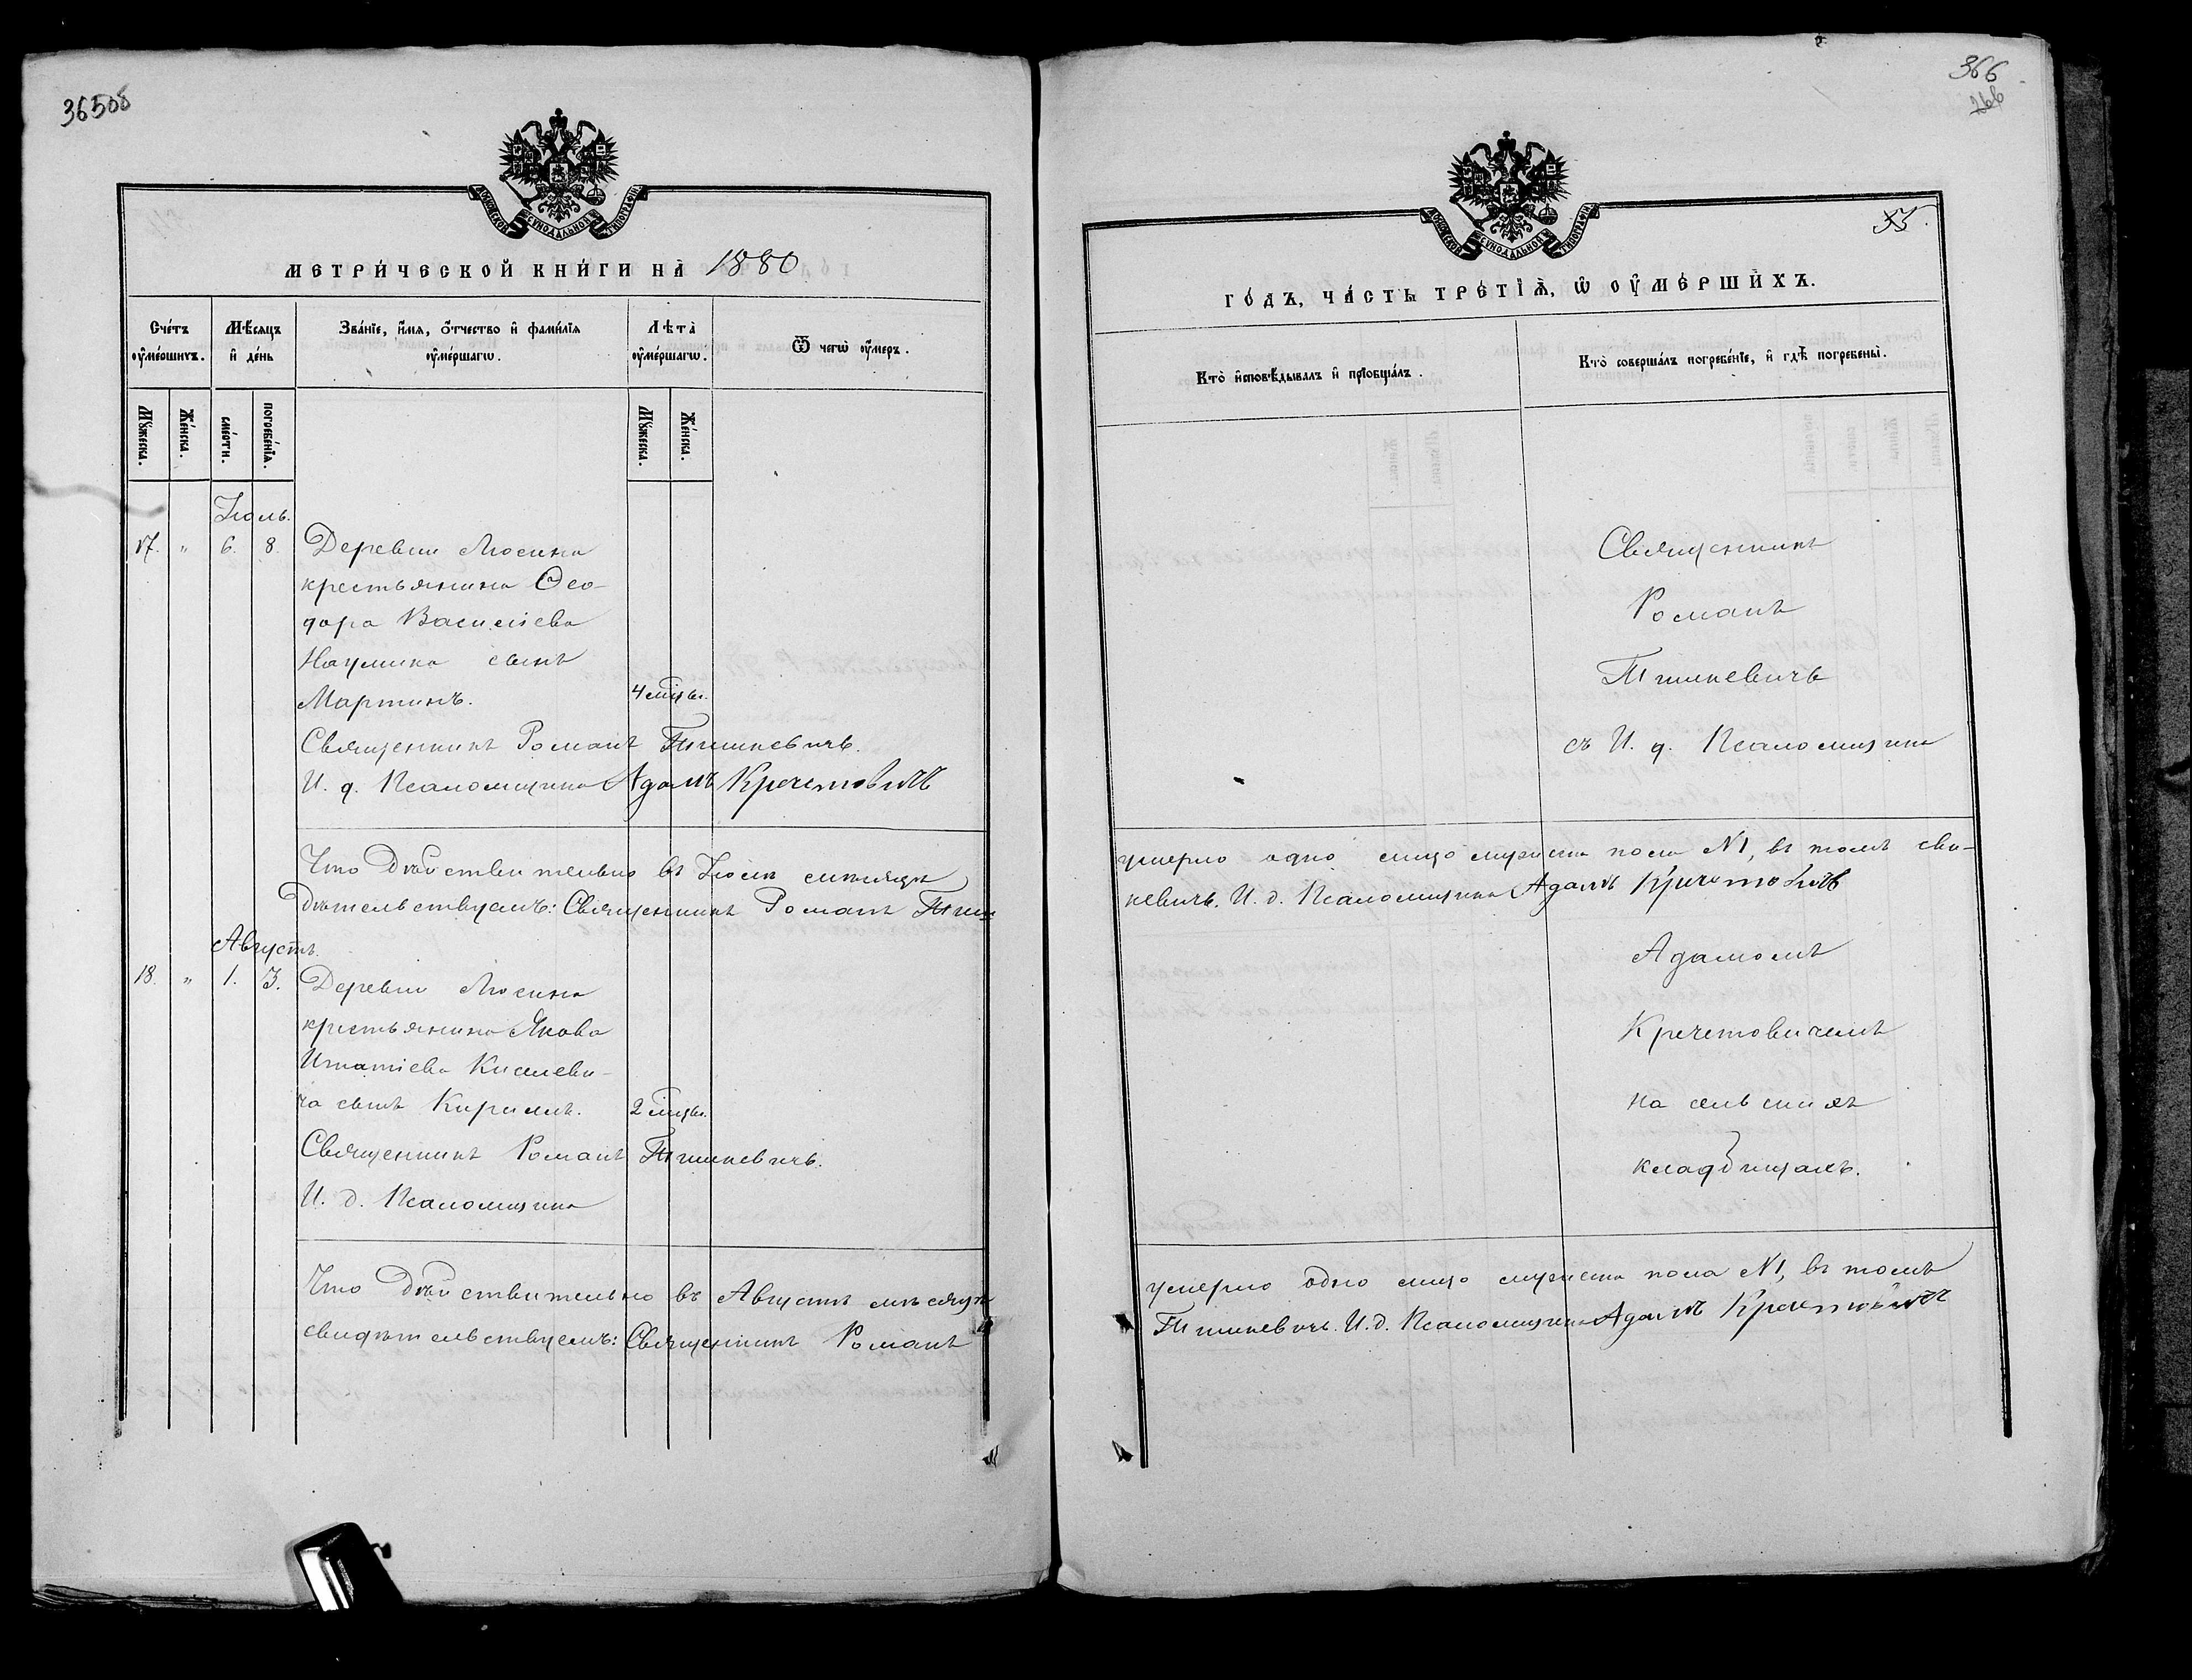 365об
МЕТРИ́ЧЕСКОЙ КНИ́ГИ НА̀ 1880
Сче́тъ ᲂу҆ме́ршихъ.
Мѣ́сяцъ и҆ де́нь
Зва́нїе, и҆́мя, ѻ҆́тчество и҆ фами́лїя ᲂу҆ме́ршагѡ.
Лѣ́та ᲂу҆ме́ршагѡ.
Ѿ чегѡ̀ ᲂу҆́меръ.
Мꙋ́жеска.
Же́нска.
сме́рти.
погребе́нїя.
Мꙋ́жеска.
Же́нска.
Іюль.
17. " 6. 8. Деревни Люсина
крестьянина Ѳео-
дора Василіева
Наумика сынъ
Мартинъ. 4 мѣцы.
Священникъ Романъ Тышкевичъ.
И. д. Псаломщика Адамъ Кречетовичъ
Что дѣйствительно въ Іюлѣ мѣсяцѣ
дѣтельствуемъ: Священникъ Романъ Тыш-
Августъ.
18. " 1. 3. Деревни Люсина
крестьянина Якова
Игнатіева Кисилеви-
ча сынъ Кириллъ. 2 мѣцы.
Священникъ Романъ Тышкевичъ.
И. д. Псаломщика
Что дѣйствительно въ Августѣ мѣсяцѣ
свидѣтельствуемъ: Священникъ Романъ
366
266
55.
ГО́ДЪ, ЧА́СТЬ ТРЕ́ТЇЯ, Ѡ҆ ОУ҆МЕ́РШИХЪ.
Кто̀ и҆сповѣ́дывалъ и҆ прїѡбща́лъ.
Кто̀ соверша́лъ погребе́нїе, и҆ гдѣ̀ погребены̀.
Священникъ
Романъ
Тышкевичъ
съ И. д. Псаломщика
умерло одно лицо мужеска пола №1, въ томъ сви-
кевичъ. И. д. Псаломщика Адамъ Кречетовичъ
Адамомъ
Кречетовичемъ
на сельскихъ
кладбищахъ.
умерло одно лицо мужеска пола №1, въ томъ
Тышкевичъ. И. д. Псаломщика Адамъ Кречетовичъ